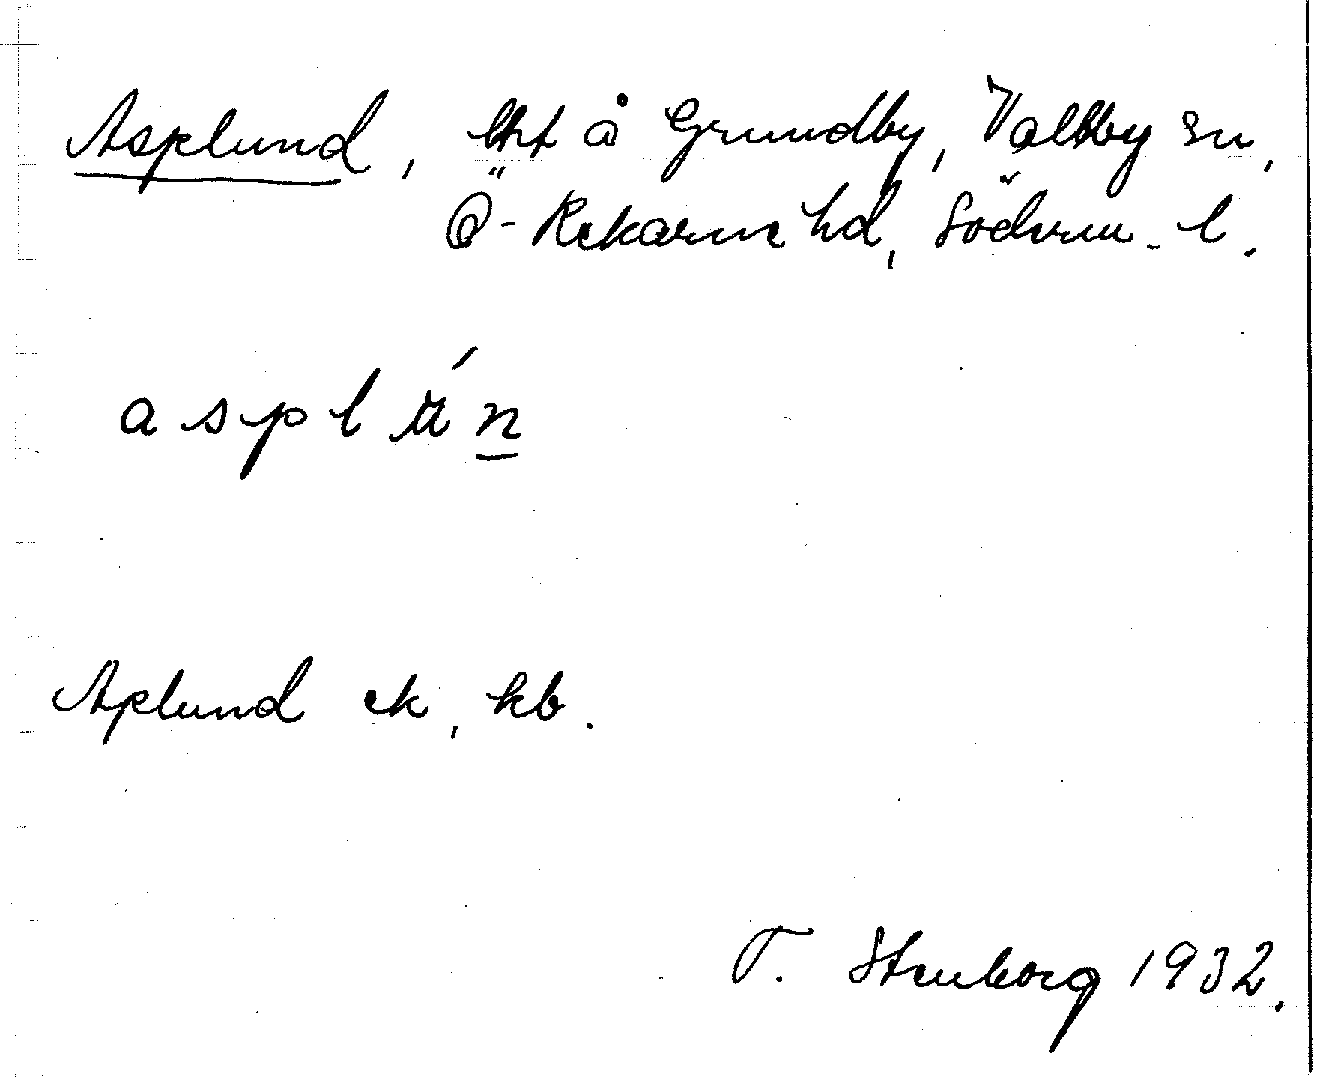 Asplund, lht å Grundby, Vallby sn,
Ö-Rekarne hd, Söderm. l.
asplún
Asplund ek, kb.
T. Stenborg 1932.